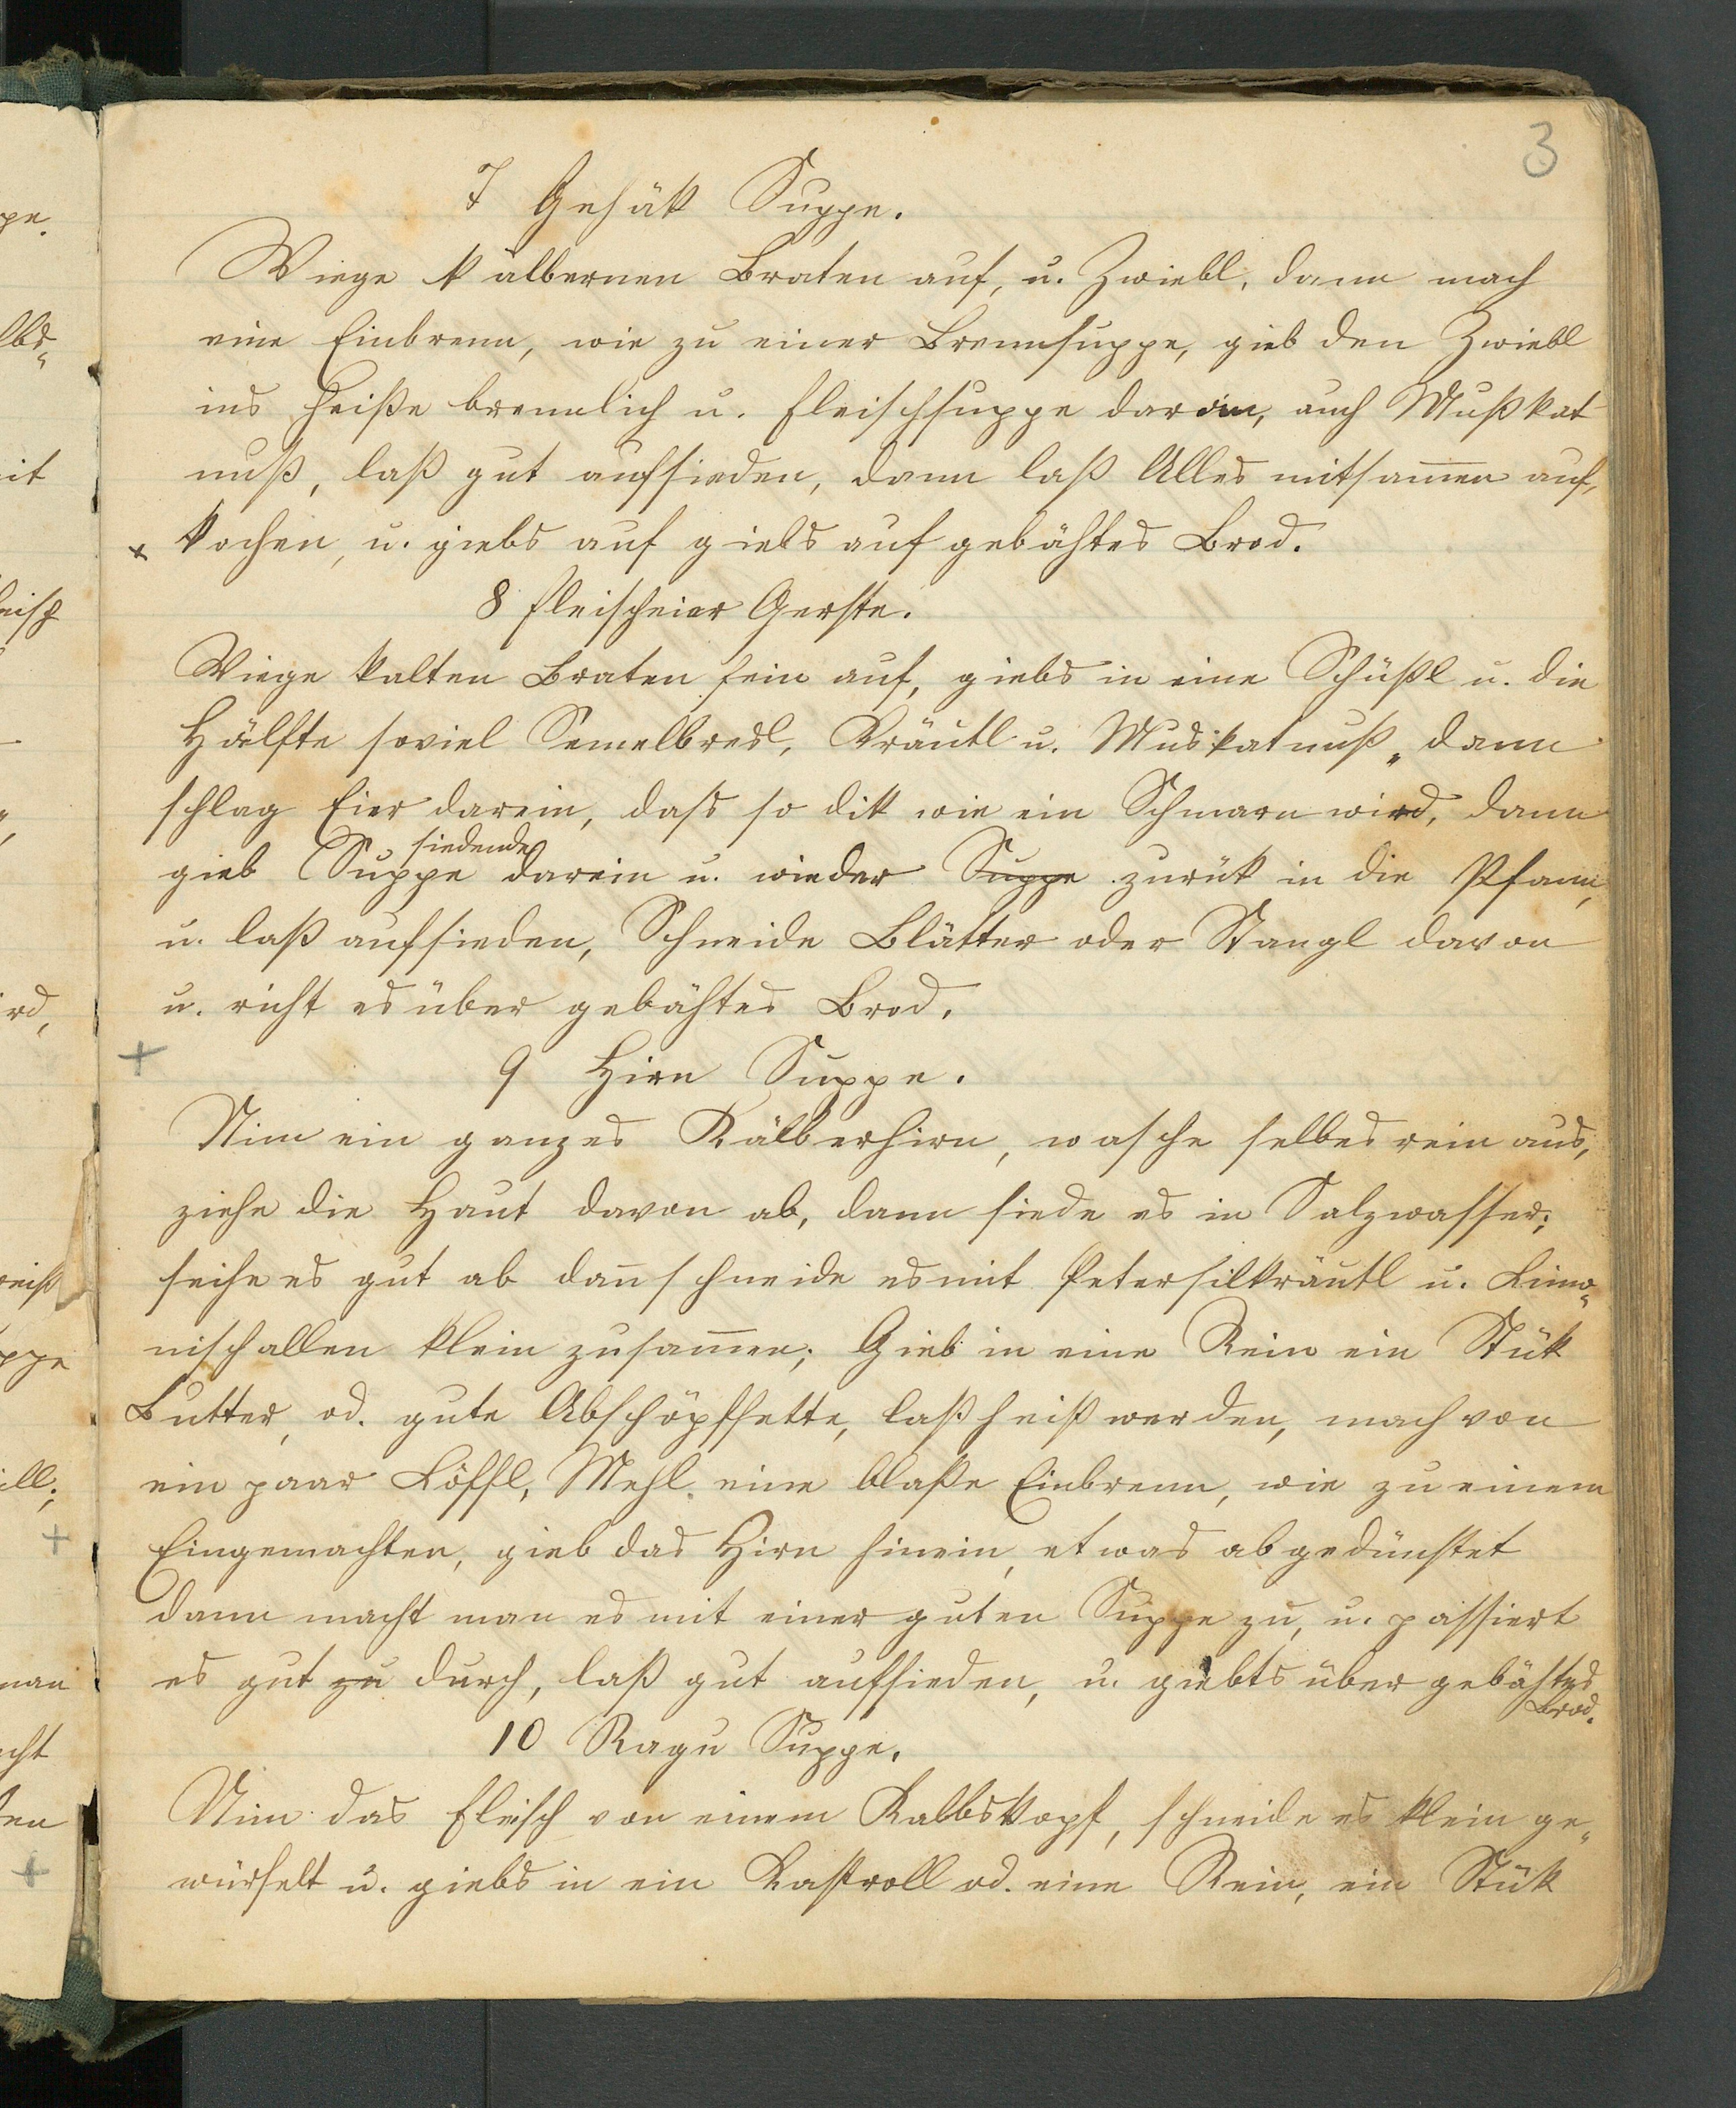 3
7 Gehäk Suppe.
Wiege kälbernen Braten auf, u. Zwiebl, dann mach
eine Einbrenn, wie zu einer Brennsuppe, gieb den Zwiebl
ins heiße brennlich u. Fleischsuppe darein, auch Mußkat
nuß, laß gut aufsieden, dann laß Alles mitsam̅en auf,
kochen, u. giebs auf giebs auf gebähtes Brod.
8 Fleischeier Gerste.
Wiege kalten Braten fein auf, giebs in eine Schüßl u. die
Hälfte soviel Semelbresl, Kräutl u. Muskatnuß„ dann
schlag Eier darein, dass so dik wie ein Schmarn wird, dann
siedende
gieb Suppe darein u. wieder Suppe zurük in die Pfann,
u. laß aufsieden, Schneide Blätter oder Stangl davon
u. richt es über gebähtes Brod.
9 Hirn Suppe.
Nim ein ganzes Kälberhirn, wasche selbes rein aus,
ziehe die Haut davon ab, dann siede es in Salzwasser;
seihe es gut ab dan̅ schneide es mit Petersilkräutl u. Limo„
nischallen klein zusam̅en; Gieb in eine Rein ein Stük
Butter, od. gute Abschöpffette, laß heiß werden, mach von
ein paar Löffl, Mehl eine blaße Einbrenn, wie zu einem
Eingemachten, gieb das Hirn hinein, etwas abgedünstet
dann macht man es mit einer guten Suppe zu, u. passiert
es gut zu durch, laß gut aufsieden, u. giebts über gebähtes
Brod.
10 Ragu Suppe.
Nim das Fleisch von einem Kalbskopf, schneide es klein ge„
würfelt u. giebs in ein Kastroll od. eine Rein, ein Stük